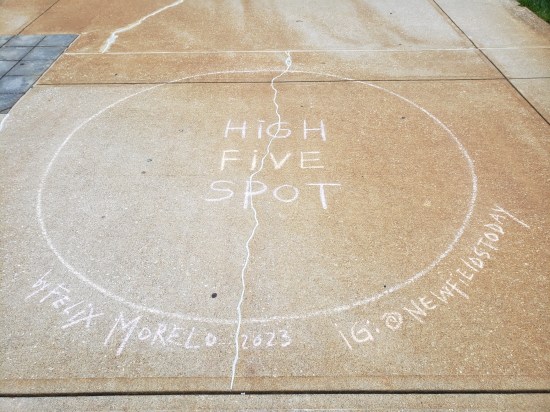 HiGH
FiVE
SPOT
by FELIX MORELO 2023
IG: @NEWFIELDSTODAY